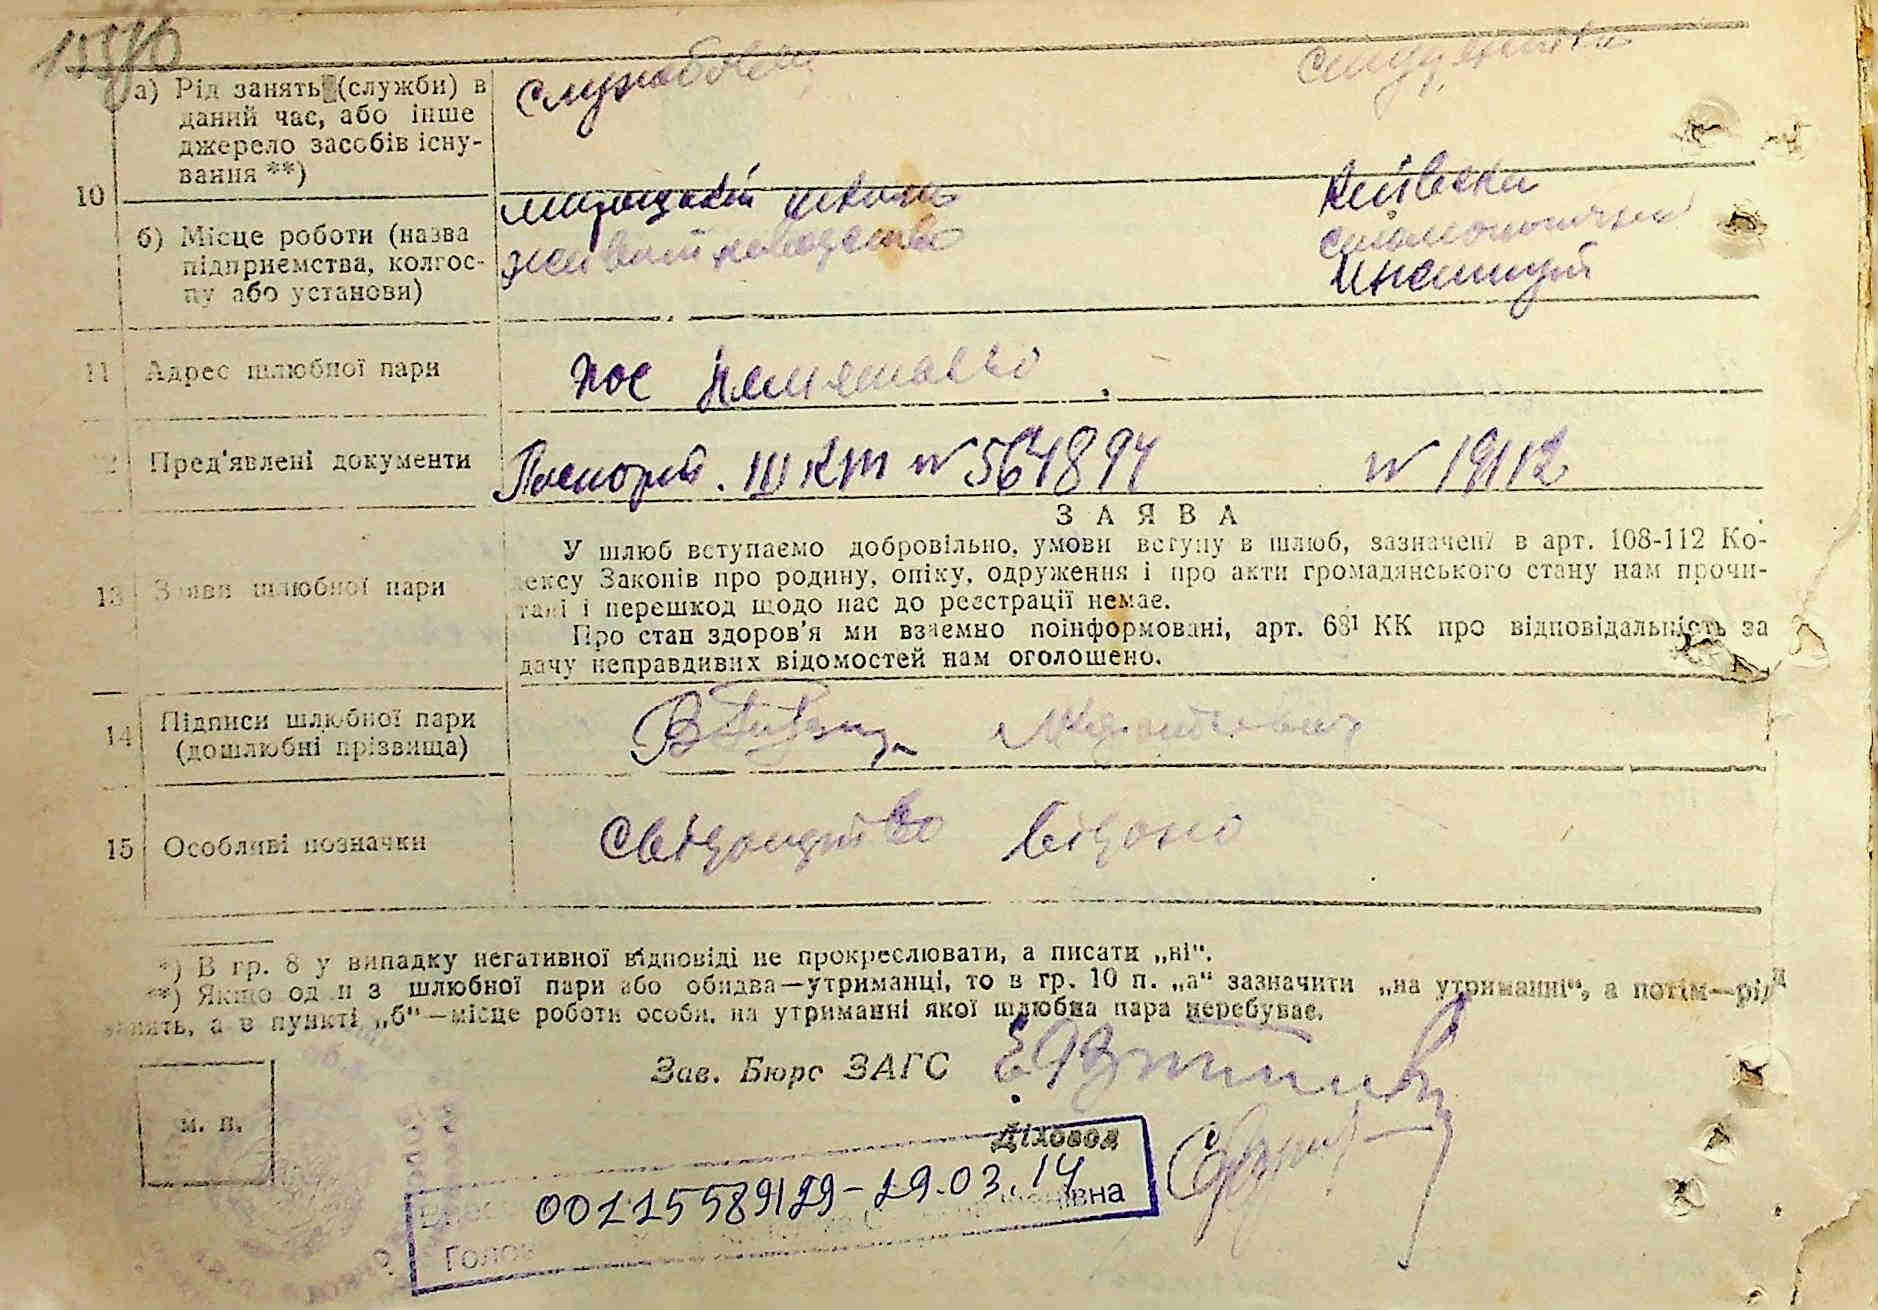 10
а) Рід занять (служби) в
даний час, або інше
джерело засобів існу-
вання **)
службовец
студентка
б) Місце роботи (назва
підприємства, колгос-
пу або установи)
школа
Київски
Інститут
11 Адрес шлюбної пари
пос
12 Пред'явлені документи
Паспорт. III КТ № 564894
№ 19112
ЗАЯВА
13 Заяви шлюбної пари
У шлюб вступаємо добровільно, умови вступу в шлюб, зазначені в арт. 108-112 Ко-
дексу Законів про родину, опіку, одруження і про акти громадянського стану нам прочи-
тані і перешкод щодо нас до реєстрації немає.
Про стан здоров'я ми взаємно поінформовані, арт. 68¹ КК про відповідальність за
дачу неправдивих відомостей нам оголошено.
14 Підписи шлюбної пари
(дошлюбні прізвища)
15 Особливі позначки
Свідоцтво видано
*) В гр. 8 у випадку негативної відповіді не прокреслювати, а писати „ні“.
**) Якщо один з шлюбної пари або обидва—утриманці, то в гр. 10 п. „а“ зазначити „на утриманні“, а потім—рід
занять, а в пункті „б“—місце роботи особи, на утриманні якої шлюбна пара перебуває.
Зав. Бюро ЗАГС
м. п.
Діловод
00115589129-19.03.14
Голов
івна